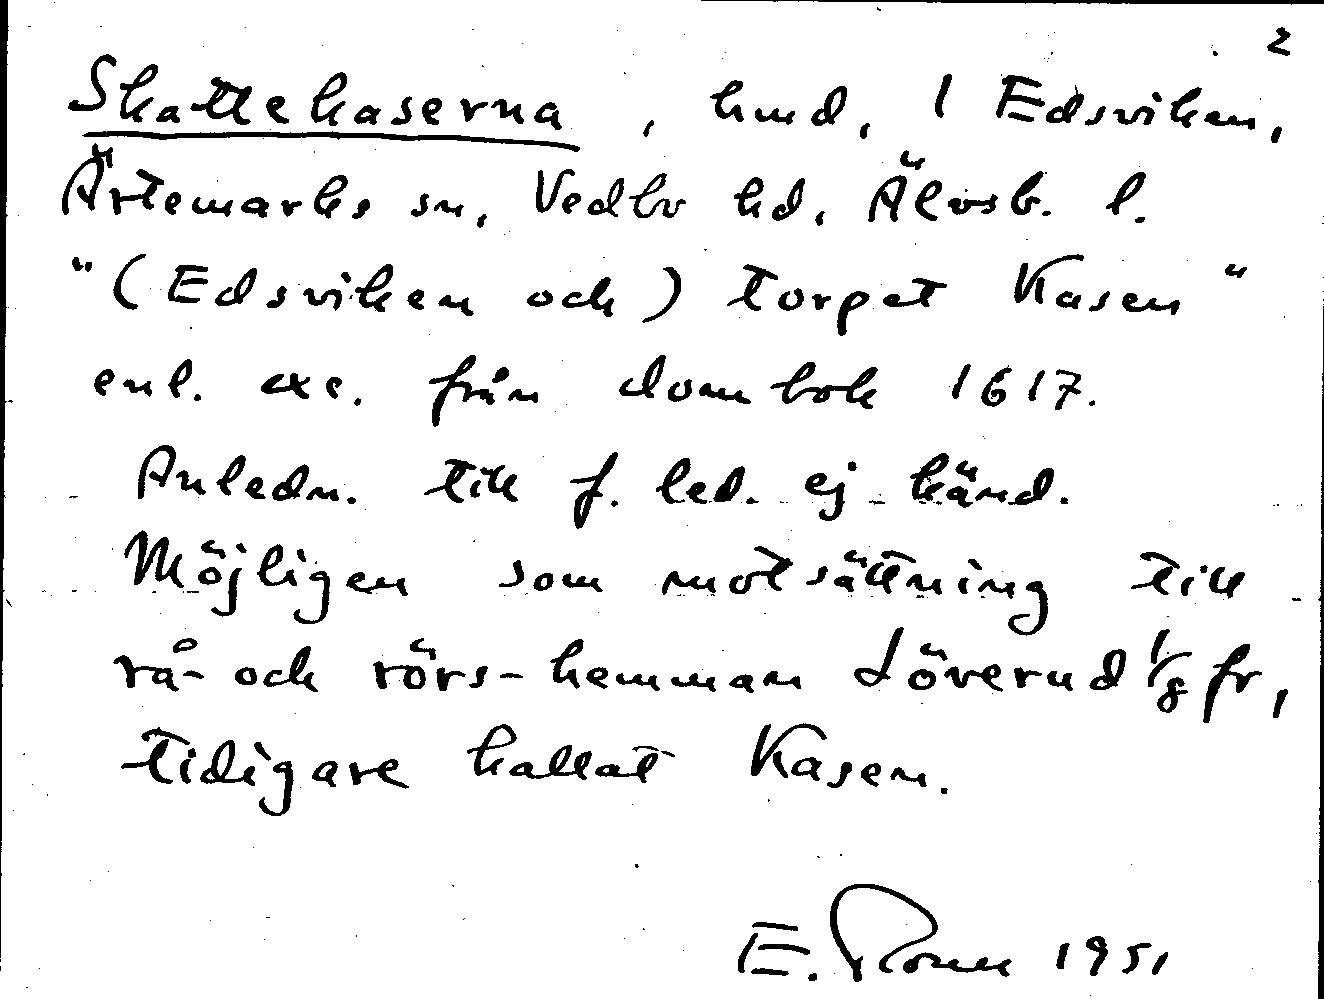 2
Skattekaserna, hmd, 1 Edsviken,
Ärtemarks sn, Vedbo hd, Älvsb. l.
"(Edsviken och) torpet Kasen"
enl. exc. från dombok 1617.
Anledn. till f. led. ej känd.
Möjligen som motsättning till
rå- och rörs-hemman Löverud 1/8 fr,
tidigare kallat Kasen.
E. 1951